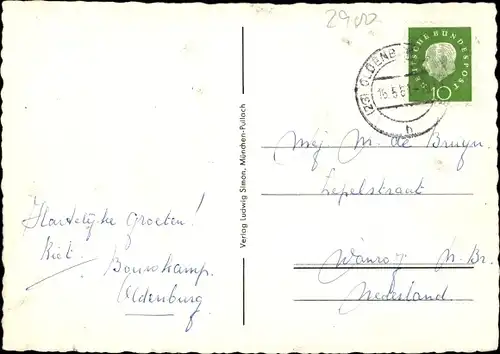 2900
DEUTSCHE BUNDESPOST
10
(23) OLDENB
16.5.6
h
Verlag Ludwig Simon, München-Pullach
Mej M. de Bruyn.
Lepelstraat
Wanroy N. Br.
Nederland
Hartelijke groeten!
Riet.
Oldenburg